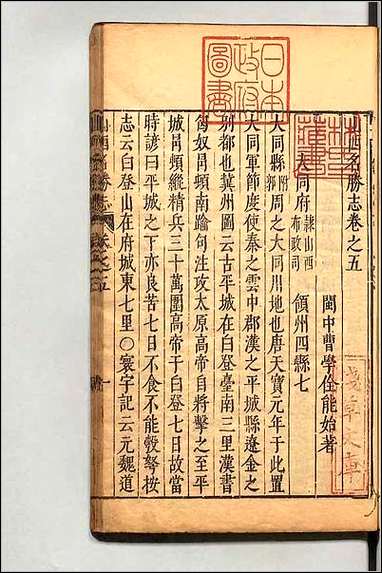 山西名勝志卷之五
閩中曹學佺能始著
大同府隷山西布政司領州四縣七
大同縣附郭周之大同川地也唐天寶元年于此置
大同軍節度使秦之雲中郡漢之平城縣遼金之
別都也冀州圖云古平城在白登臺南三里漢書
匈奴冒頓南踰句注攻太原高帝自將擊之至平
城冒頓縱精兵三十萬圍高帝于白登七日故當
時諺曰平城之下亦良苦七日不食不能彀弩按
志云白登山在府城東七里○寰宇記云元魏道
日本
政府
圖書